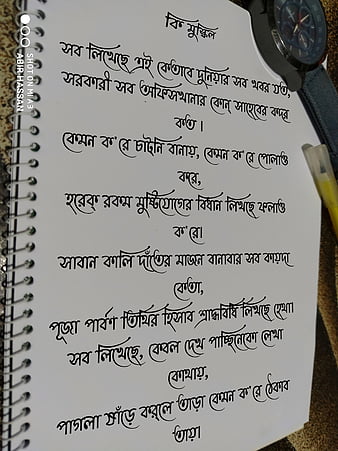 কি মুস্কিল
সব লিখেছে এই কেতাবে দুনিয়ার সব খবর যত,
সরকারী সব অফিসখানার কোন্ সাহেবের কদর
কত ।
কেমন ক'রে চাট্‌নি বানায়, কেমন ক'রে পোলাও
করে,
হরেক রকম মুষ্টিযোগের বিধান লিখছে ফলাও
ক'রে।
সাবান কালি দাঁতের মাজন বানাবার সব কায়দা
কেতা,
পূজা পার্বণ তিথির হিসাব শ্রাদ্ধবিধি লিখছে হেথা।
সব লিখেছে, কেবল দেখ পাচ্ছিনেকো লেখা
কোথায়,
পাগলা ষাঁড়ে কর্‌লে তাড়া কেমন ক'রে ঠেকাব
তায়।
SHOT ON MI A3
ABIR HASSAN